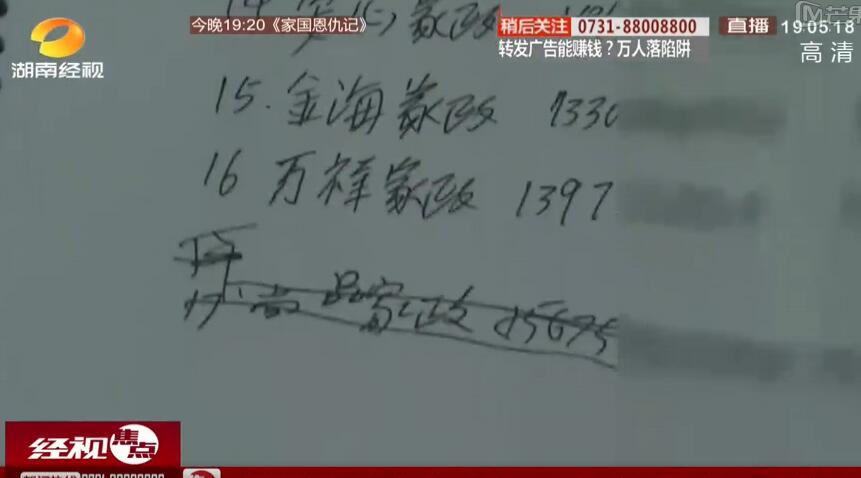 今晚19:20《家国恩仇记》
稍后关注 0731-88008800
直播 19:05:18
转发广告能赚钱？万人落陷阱
高清
湖南经视
家政
15.金海家政 1330
16 万祥家政 1397
家政 15675
经视焦点